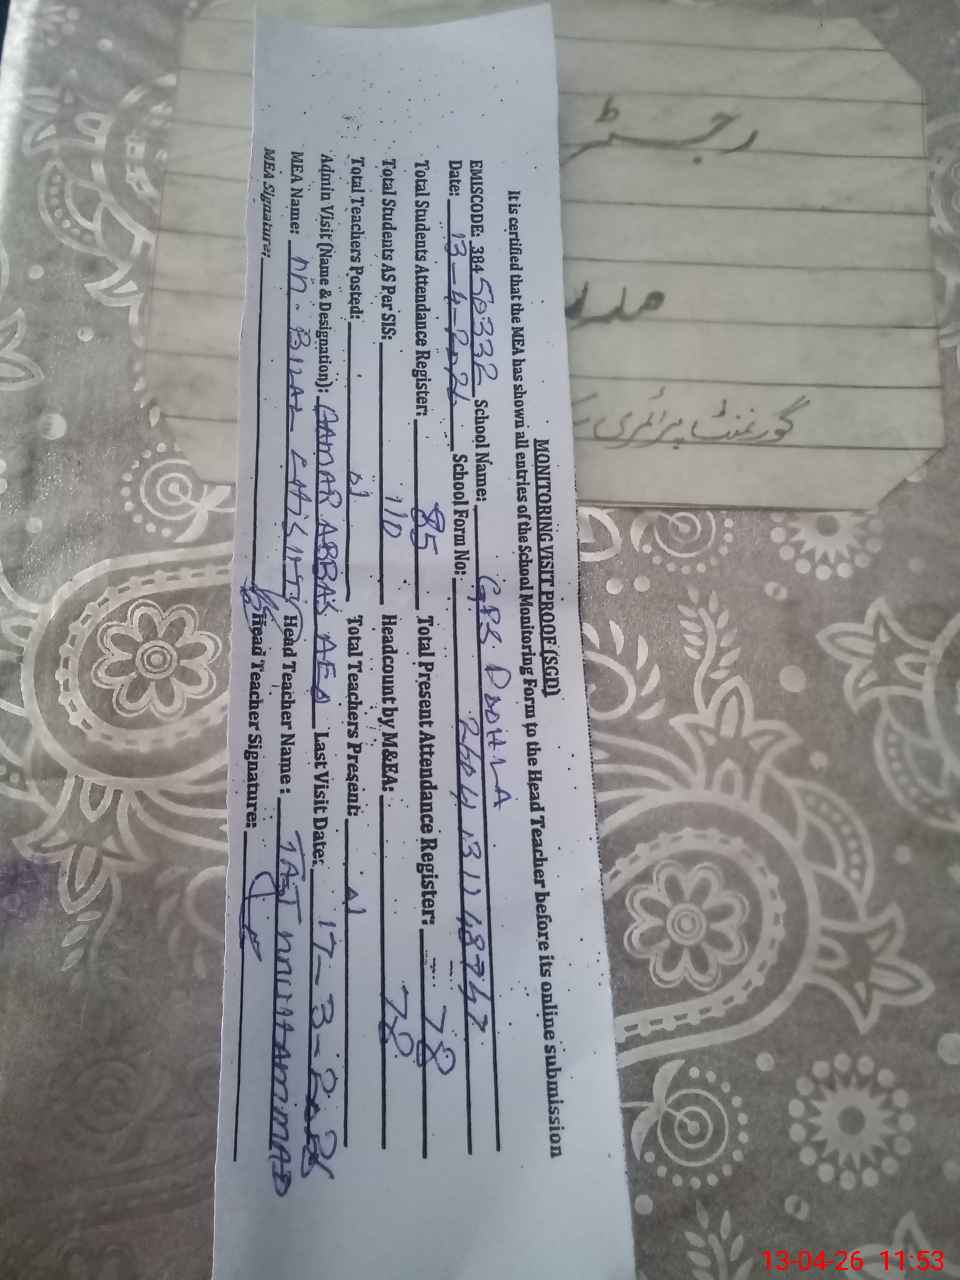 MONITORING VISIT PROOF (SGD)
It is certified that the MEA has shown all entries of the School Monitoring Form to the Head Teacher before its online submission
EMISCODE: 38450332 School Name: GPS DHOHLA
Date: 13-4-2026 School Form No: 2604131148747
Total Students Attendance Register: 85 Total Present Attendance Register: 78
Total Students AS Per SIS: 110 Headcount by M&EA: 78
Total Teachers Posted: Total Teachers Present:
Admin Visit (Name & Designation): QAMAR ABBAS AEO Last Visit Date: 17-3-2026
MEA Name: M. BILAL Head Teacher Name: TAJ MUHAMMAD
MEA Signature: Head Teacher Signature:
رجسٹر
گورنمنٹ پرائمری
13-04-26 11:53